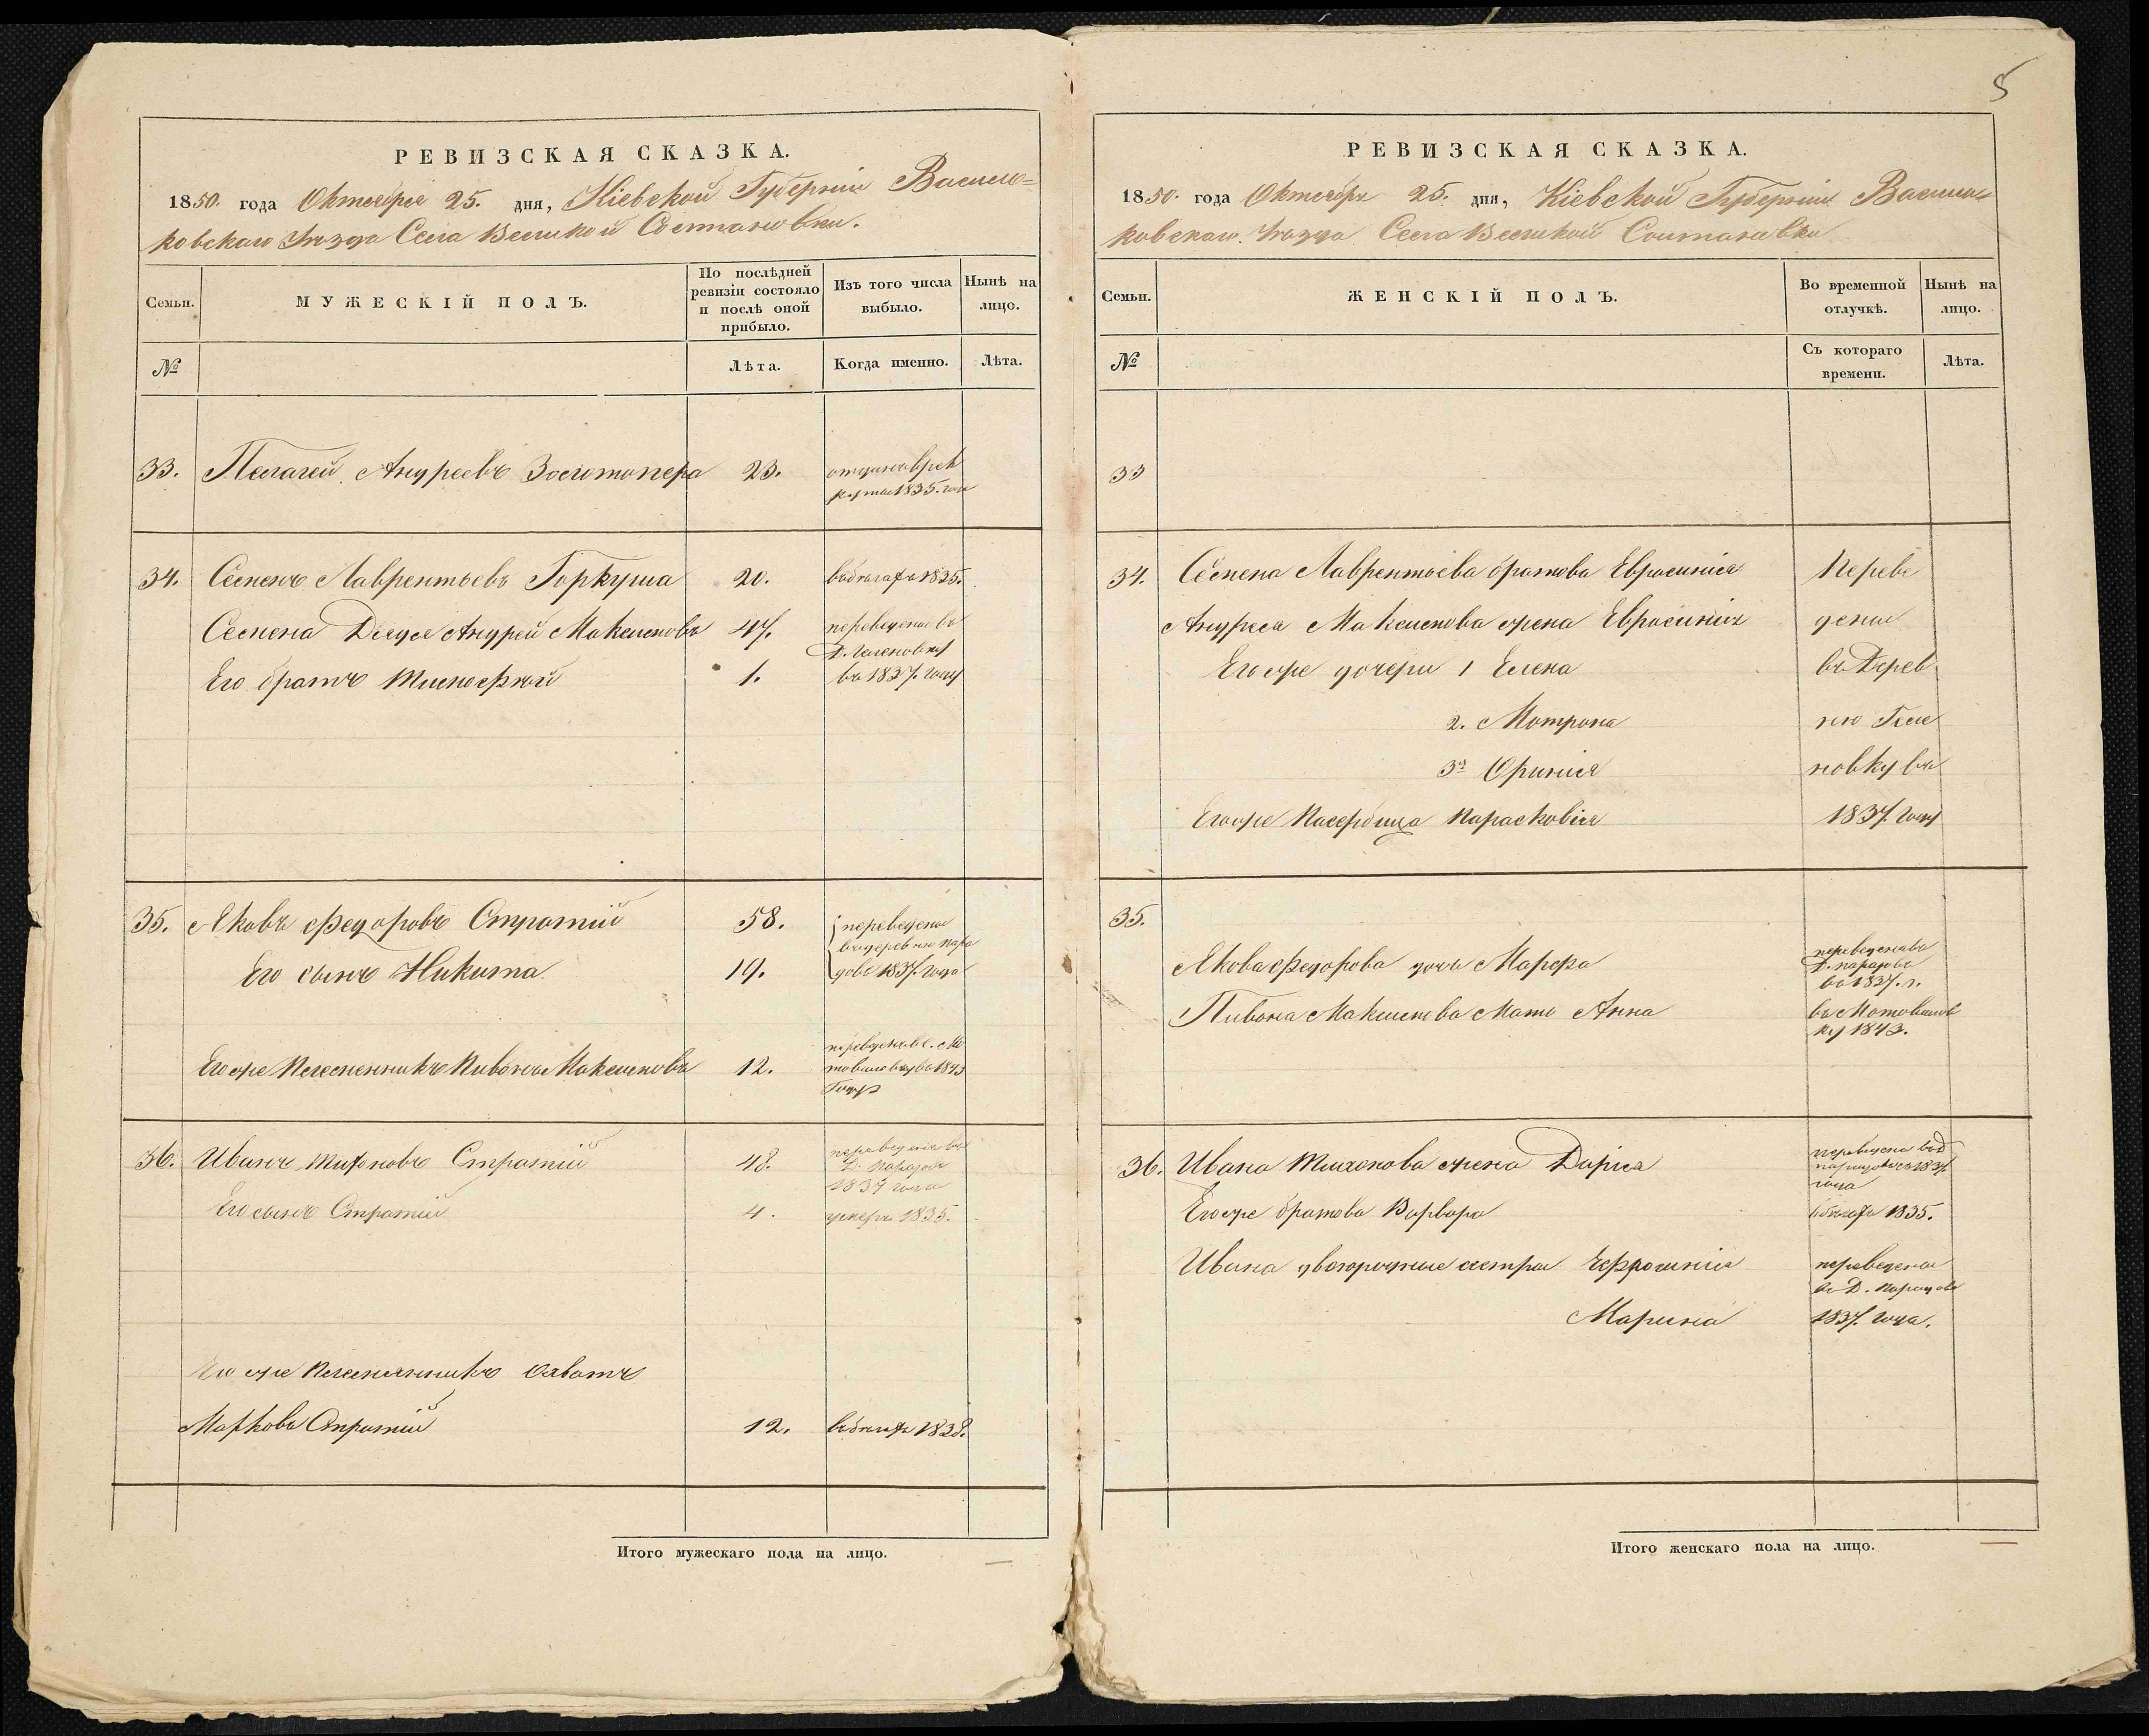 5
РЕВИЗСКАЯ СКАЗКА.
1850. года Октября 25. дня, Кіевской Губерніи Василь=
ковскаго Уѣзда Села Великой Солтановки.
Семьи.
МУЖЕСКІЙ ПОЛЪ.
По послѣдней ревизіи состояло и послѣ оной прибыло.
Изъ того числа выбыло.
Нынѣ на лицо.
№
Лѣта.
Когда именно.
Лѣта.
33. Пелагей Андреевъ Золотопера 23. отданъ в рек
руты 1835. года
34. Семенъ Лаврентьевъ Горкуша 20. въ бѣгахъ 1835.
Семена Дядя Андрей Максимовъ 47. переведены въ
Д. Геленовку
Его братъ Тимофѣй 1. въ 1837. году
35. Яковъ Федоровъ Стратій 58. переведены
въ деревню Пара
Его сынъ Никита 19. довъ 1837. года
Его же Племенникъ Пивонъ Максимовъ 12. переведенъ в с. Мо
товиловку въ 1843
Году
36. Иванъ Тихоновъ Стратій 48. переведенъ въ
Д. Парадовъ
1837 года
Его сынъ Стратій 4. умеръ 1835.
Его же Племянникъ
Марковъ Стратій 12. въ бѣгахъ 1838.
Итого мужескаго пола на лицо. —
РЕВИЗСКАЯ СКАЗКА.
1850. года Октября 25. дня, Кіевской Губерніи Василь=
ковскаго Уѣзда Села Великой Солтановки
Семьи.
ЖЕНСКІЙ ПОЛЪ.
Во временной отлучкѣ.
Нынѣ на лицо.
№
Съ котораго времени.
Лѣта.
33
34. Семена Лаврентьева братова Евросинія Переве
Андрея Максимова жена Евросинія дены
Его же дочери 1 Елена въ Дерев
2. Мотрона ню Геле
3я Ориния новку въ
Его же Пасербица Парасковія 1837. году
35.
Якова Федорова дочь Марфа переведена въ
Д. Парадовъ
въ 1837. г.
Пивона Максимова Мать Анна въ Мотовилов
ку 1843.
36. Ивана Тихонова жена Дарія переведена въ Д
Парадовъ 1837.
года
Его же братова Варвара въ бѣгахъ 1835.
Ивана двоюродные сестры Ефросинія переведены
въ Д. Парадовъ
Марина 1837. года.
Итого женскаго пола на лицо. —